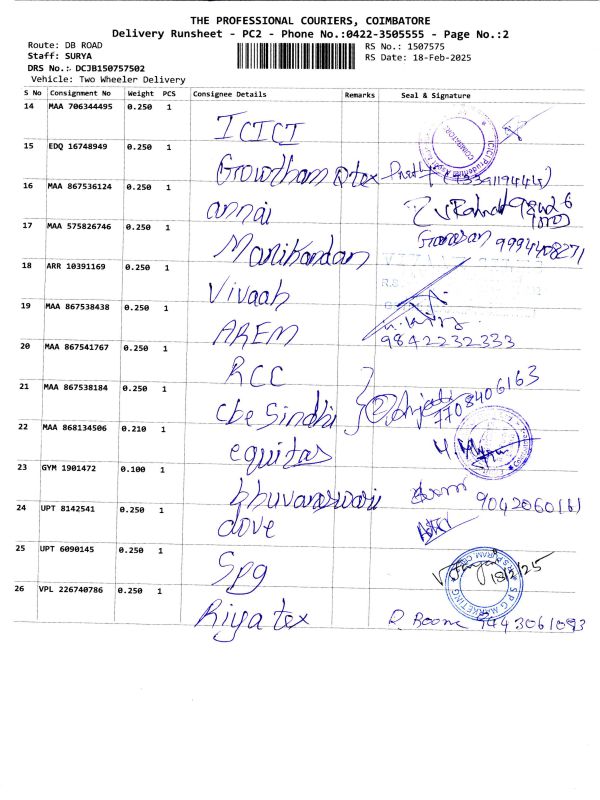 THE PROFESSIONAL COURIERS, COIMBATORE
Delivery Runsheet - PC2 - Phone No.:0422-3505555 - Page No.:2
Route: DB ROAD RS No.: 1507575
Staff: SURYA RS Date: 18-Feb-2025
DRS No.: DCJB150757502
Vehicle: Two Wheeler Delivery
S No Consignment No Weight PCS Consignee Details Remarks Seal & Signature
14 MAA 706344495 0.250 1 ICICI
COIMBATORE
15 EDQ 16748949 0.250 1 Growtham Qtex
16 MAA 867536124 0.250 1 annai
17 MAA 575826746 0.250 1 Manikandan 9994408271
18 ARR 10391169 0.250 1 Vivaah
19 MAA 867538438 0.250 1 AREM 9842232333
20 MAA 867541767 0.250 1 RCC
21 MAA 867538184 0.250 1 Cbe Sindhi 7708406163
22 MAA 868134506 0.210 1 equitas
23 GYM 1901472 0.100 1 bhuvaneswari 9042060161
24 UPT 8142541 0.250 1 dove
25 UPT 6090145 0.250 1 Spg 18/2/25
S.P.G. MARKETING
26 VPL 226740786 0.250 1 Riya tex R. Boome 9443061093